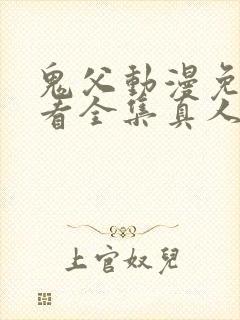 鬼父動漫免
看全集真人
上官奴兒